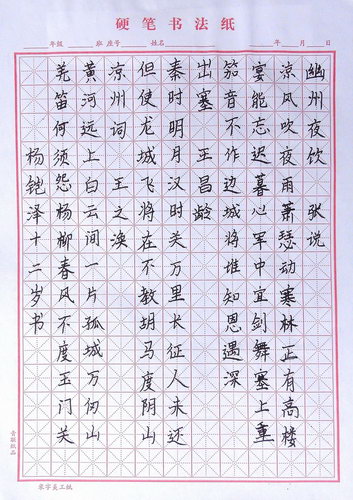 硬笔书法纸
年级 班 座号 姓名 年 月 日
幽州夜饮 张说
凉风吹夜雨萧瑟动寒林正有高楼
宴能忘迟暮心军中宜剑舞塞上重
笳音不作边城将谁知恩遇深
出塞 王昌龄
秦时明月汉时关万里长征人未还
但使龙城飞将在不教胡马度阴山
凉州词 王之涣
黄河远上白云间一片孤城万仞山
羌笛何须怨杨柳春风不度玉门关
杨铠泽十二岁书